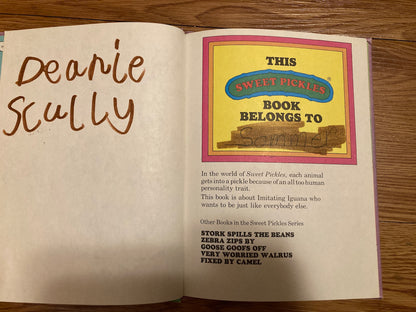 Deanie
Scully
THIS
SWEET PICKLES
BOOK
BELONGS TO
In the world of Sweet Pickles, each animal
gets into a pickle because of an all too human
personality trait.
This book is about Imitating Iguana who
wants to be just like everybody else.
Other Books in the Sweet Pickles Series
STORK SPILLS THE BEANS
ZEBRA ZIPS BY
GOOSE GOOFS OFF
VERY WORRIED WALRUS
FIXED BY CAMEL